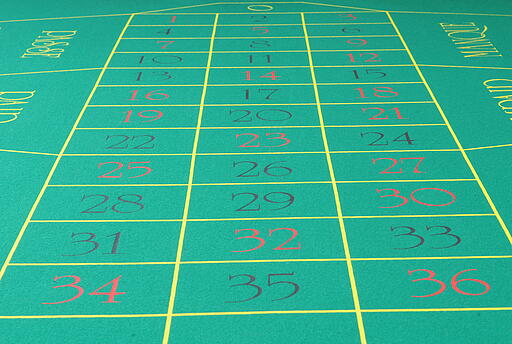 0
1 2 3
4 5 6
7 8 9
10 11 12
13 14 15
16 17 18
19 20 21
22 23 24
25 26 27
28 29 30
31 32 33
34 35 36
PASSE
MANQUE